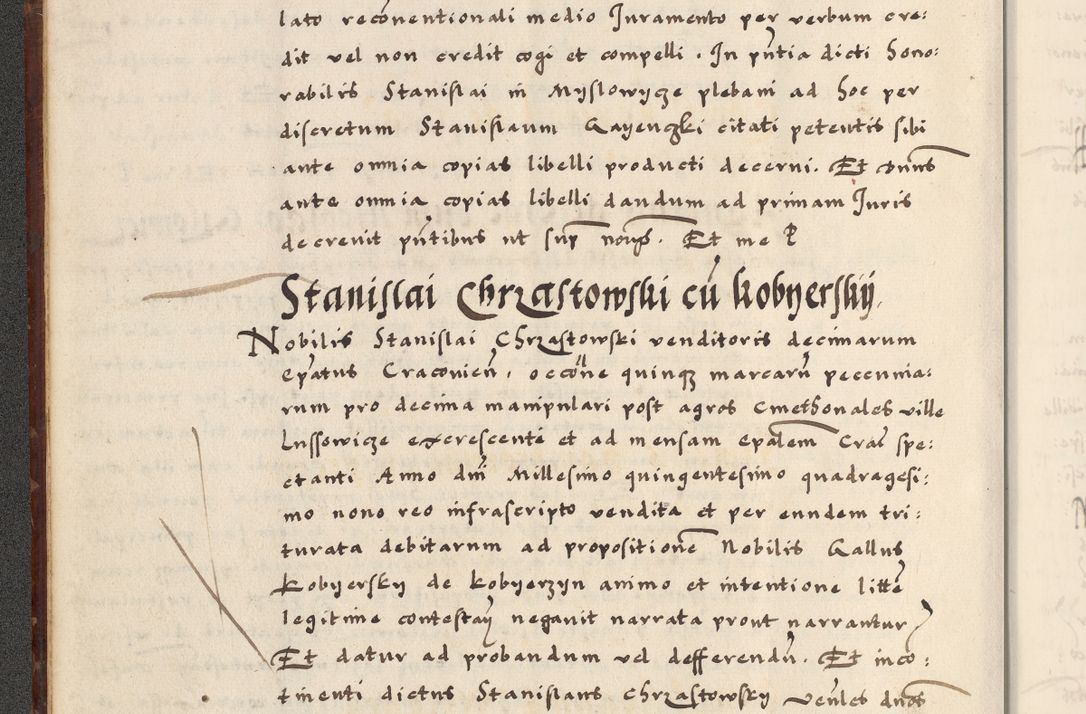 lato recōnentionali medio Juramento per verbum cre:
dit vel non credit cogi et compelli . In pn̄tia dicti Hono:
rabilis Stanislai in Myslowycze plebani ad hoc per
discretum Stanislaum Gayenczki citati petentis sibi
ante omnia copias libelli producti decerni. Et dn̄us
ante omnia copias libelli dandum ad primam Juris
decrevit pn̄tibus ut sup̄ Et me
Stanislai Chrząstowski cū kobyerskij
Nobilis Stanislai Chrząstowski venditoris decimarum
Ep̄atus Cracovien̄, occōne quinq3 marcarū peccunia:
rum pro decima manipulari post agros Cmethonales ville
Lussowicze excrescente et ad mensam Ep̄alem Crac̄ spe:
ctanti Anno dn̄i Millesimo quingentesimo quadragesi:
mo nono reo infrascripto vendita et per eundem tri:
turata debitarum ad propositionē Nobilis Gallus
Kobyersky de kobyerzyn animo et intentione litte
legitime contestan̄ negavit narrata prout narrantur
Et datur ad probandum vel defferendū. Et inco:
tinenti dictus Stanislaus Chrząstowsky dn̄os